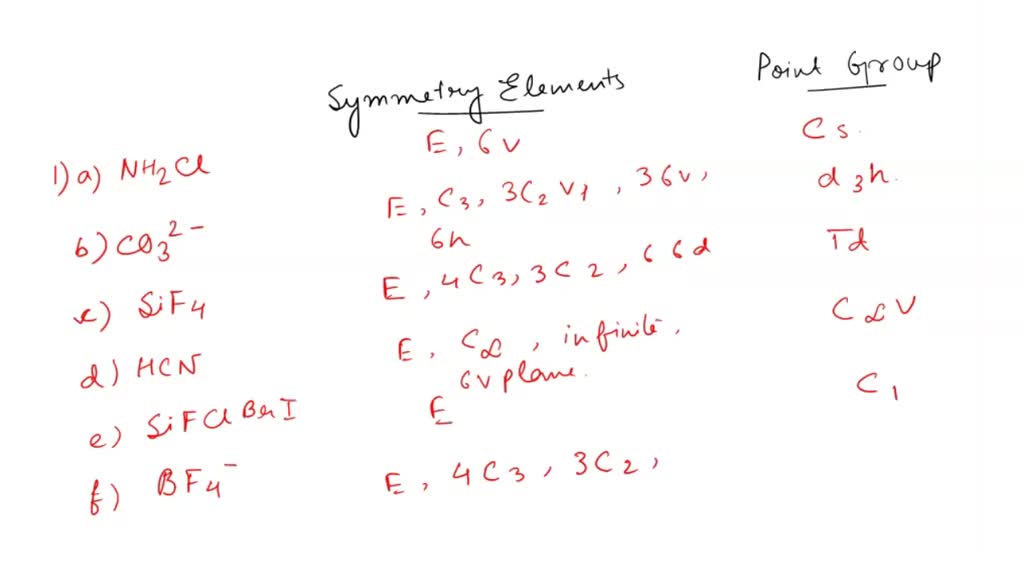 Symmetry Elements Point Group
1) a) NH2Cl E, σv Cs.
b) CO3 2- E, C3, 3C2 V1, 3σv, σh d3h.
c) SiF4 E, 4C3, 3C2, 6σd Td
d) HCN E, C∞, infinite, σv plane. C∞V
e) SiFClBrI E C1
f) BF4- E, 4C3, 3C2,